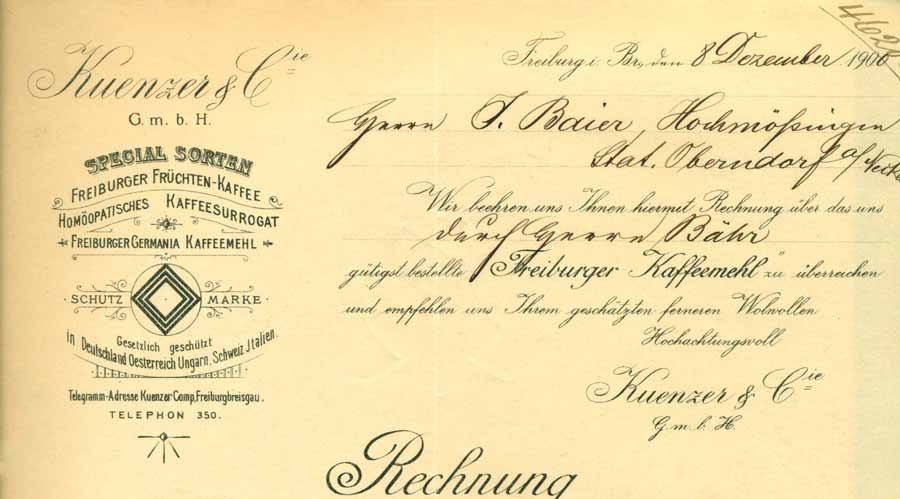 Kuenzer & Cie
G. m. b. H.
SPECIAL SORTEN
FREIBURGER FRÜCHTEN-KAFFEE
HOMÖOPATISCHES KAFFEESURROGAT
FREIBURGER GERMANIA KAFFEEMEHL
SCHUTZ MARKE
Gesetzlich geschützt
in Deutschland Oesterreich Ungarn, Schweiz Jtalien.
Telegramm-Adresse Kuenzer Comp, Freiburgbreisgau.
TELEPHON 350.
Freiburg i. Br., den 8 Dezember 1900
Herrn J. Baier, Hochmößingen
Stat. Oberndorf a/Necka
Wir beehren uns Ihnen hiermit Rechnung über das uns
durch Herrn Bähr
gütigst bestellte „Freiburger Kaffeemehl" zu überreichen
und empfehlen uns Ihrem geschätzten ferneren Wolwollen
Hochachtungsvoll
Kuenzer & Cie
G. m. b. H.
Rechnung